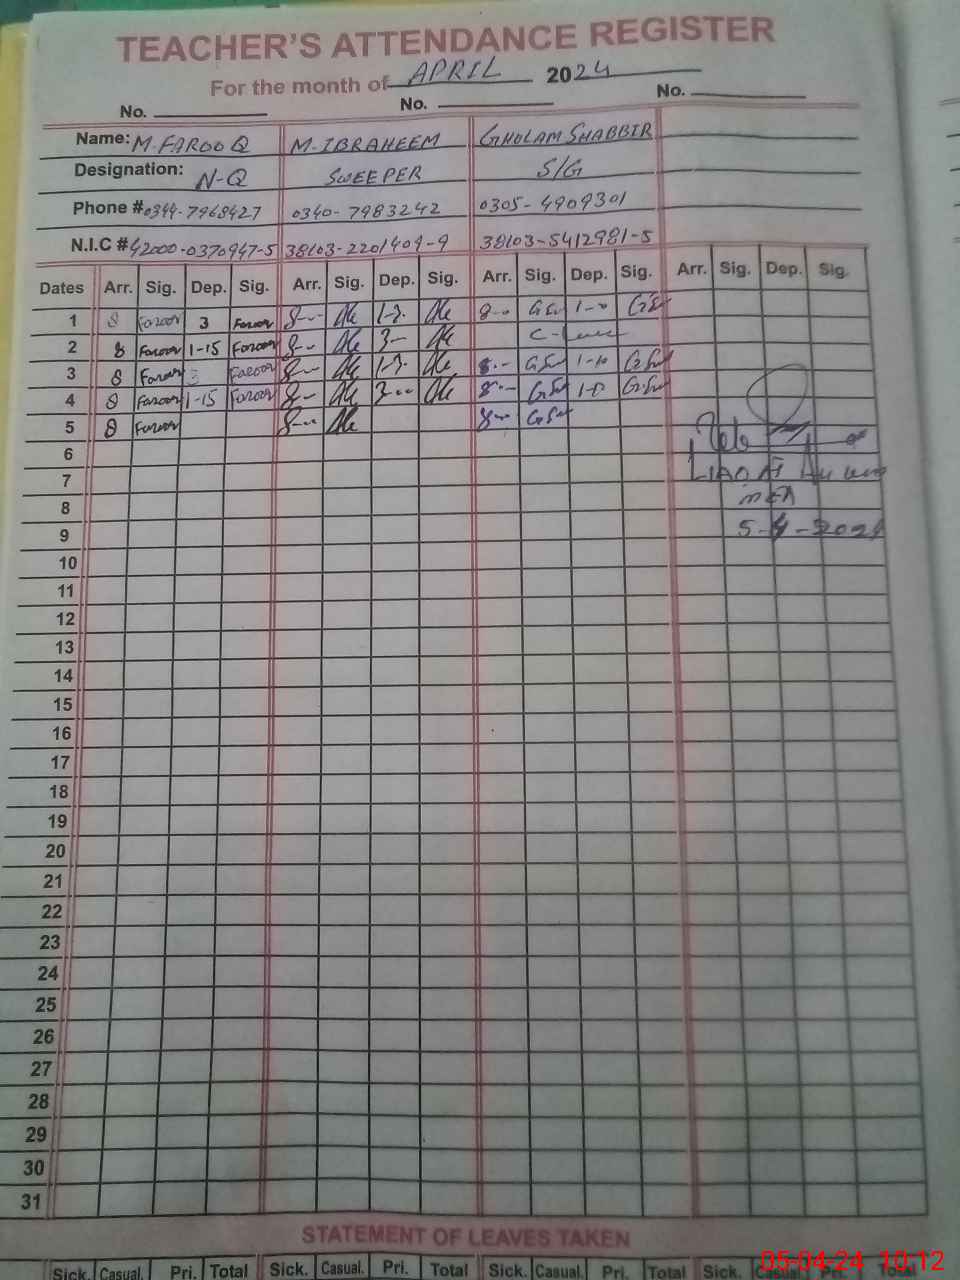 TEACHER'S ATTENDANCE REGISTER
For the month of APRIL 2024
No. No. No.
Name: M. FAROOQ M. IBRAHEEM GHOLAM SHABBIR
Designation: N-Q SWEEPER S/G
Phone # 0344-7968427 0340-7983242 0305-4909301
N.I.C # 42000-0370947-5 38103-2201409-9 38103-5412981-5
Dates Arr. Sig. Dep. Sig. Arr. Sig. Dep. Sig. Arr. Sig. Dep. Sig. Arr. Sig. Dep. Sig.
1 8 Farooq 3 Farooq 8--
2 8 Farooq 1-15 Farooq 8-- 3--
3 8 Farooq 3 Farooq 8-- 8-- 1-10
4 8 Farooq 1-15 Farooq 8-- 3-- 8--
5 8 Farooq 8-- 8--
6
7 LIAQAT
8
9 5-4-2024
10
11
12
13
14
15
16
17
18
19
20
21
22
23
24
25
26
27
28
29
30
31
STATEMENT OF LEAVES TAKEN
Sick. Casual. Pri. Total Sick. Casual. Pri. Total Sick. Casual. Pri. Total Sick. Casual. Pri.
05-04-24 10:12